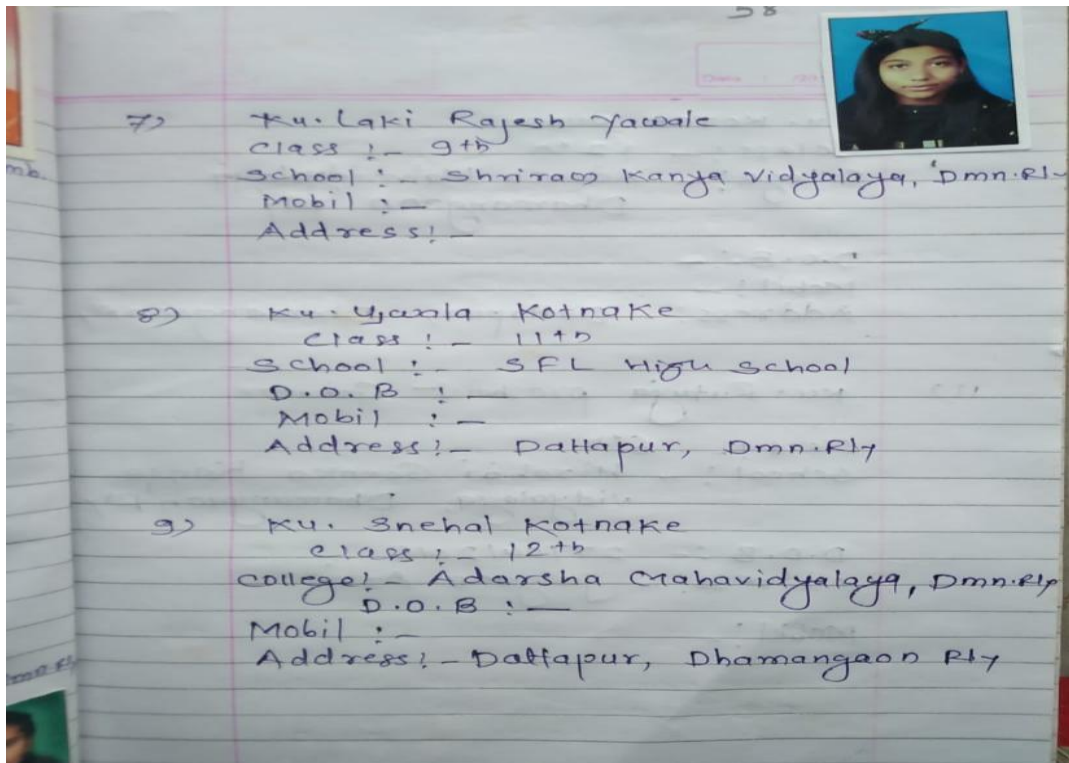 7) Ku. Laki Rajesh Yawale
Class :- 9th
School :- Shriram Kanya Vidyalaya, Dmn.Rly
Mobil :-
Address :-
8) Ku. Kotnake
Class :- 11th
School :- SFL High School
D.O.B :-
Mobil :-
Address :- Dattapur, Dmn.Rly
9) Ku. Snehal Kotnake
Class :- 12th
College :- Adarsha Mahavidyalaya, Dmn.Rly
D.O.B :-
Mobil :-
Address :- Dattapur, Dhamangaon Rly